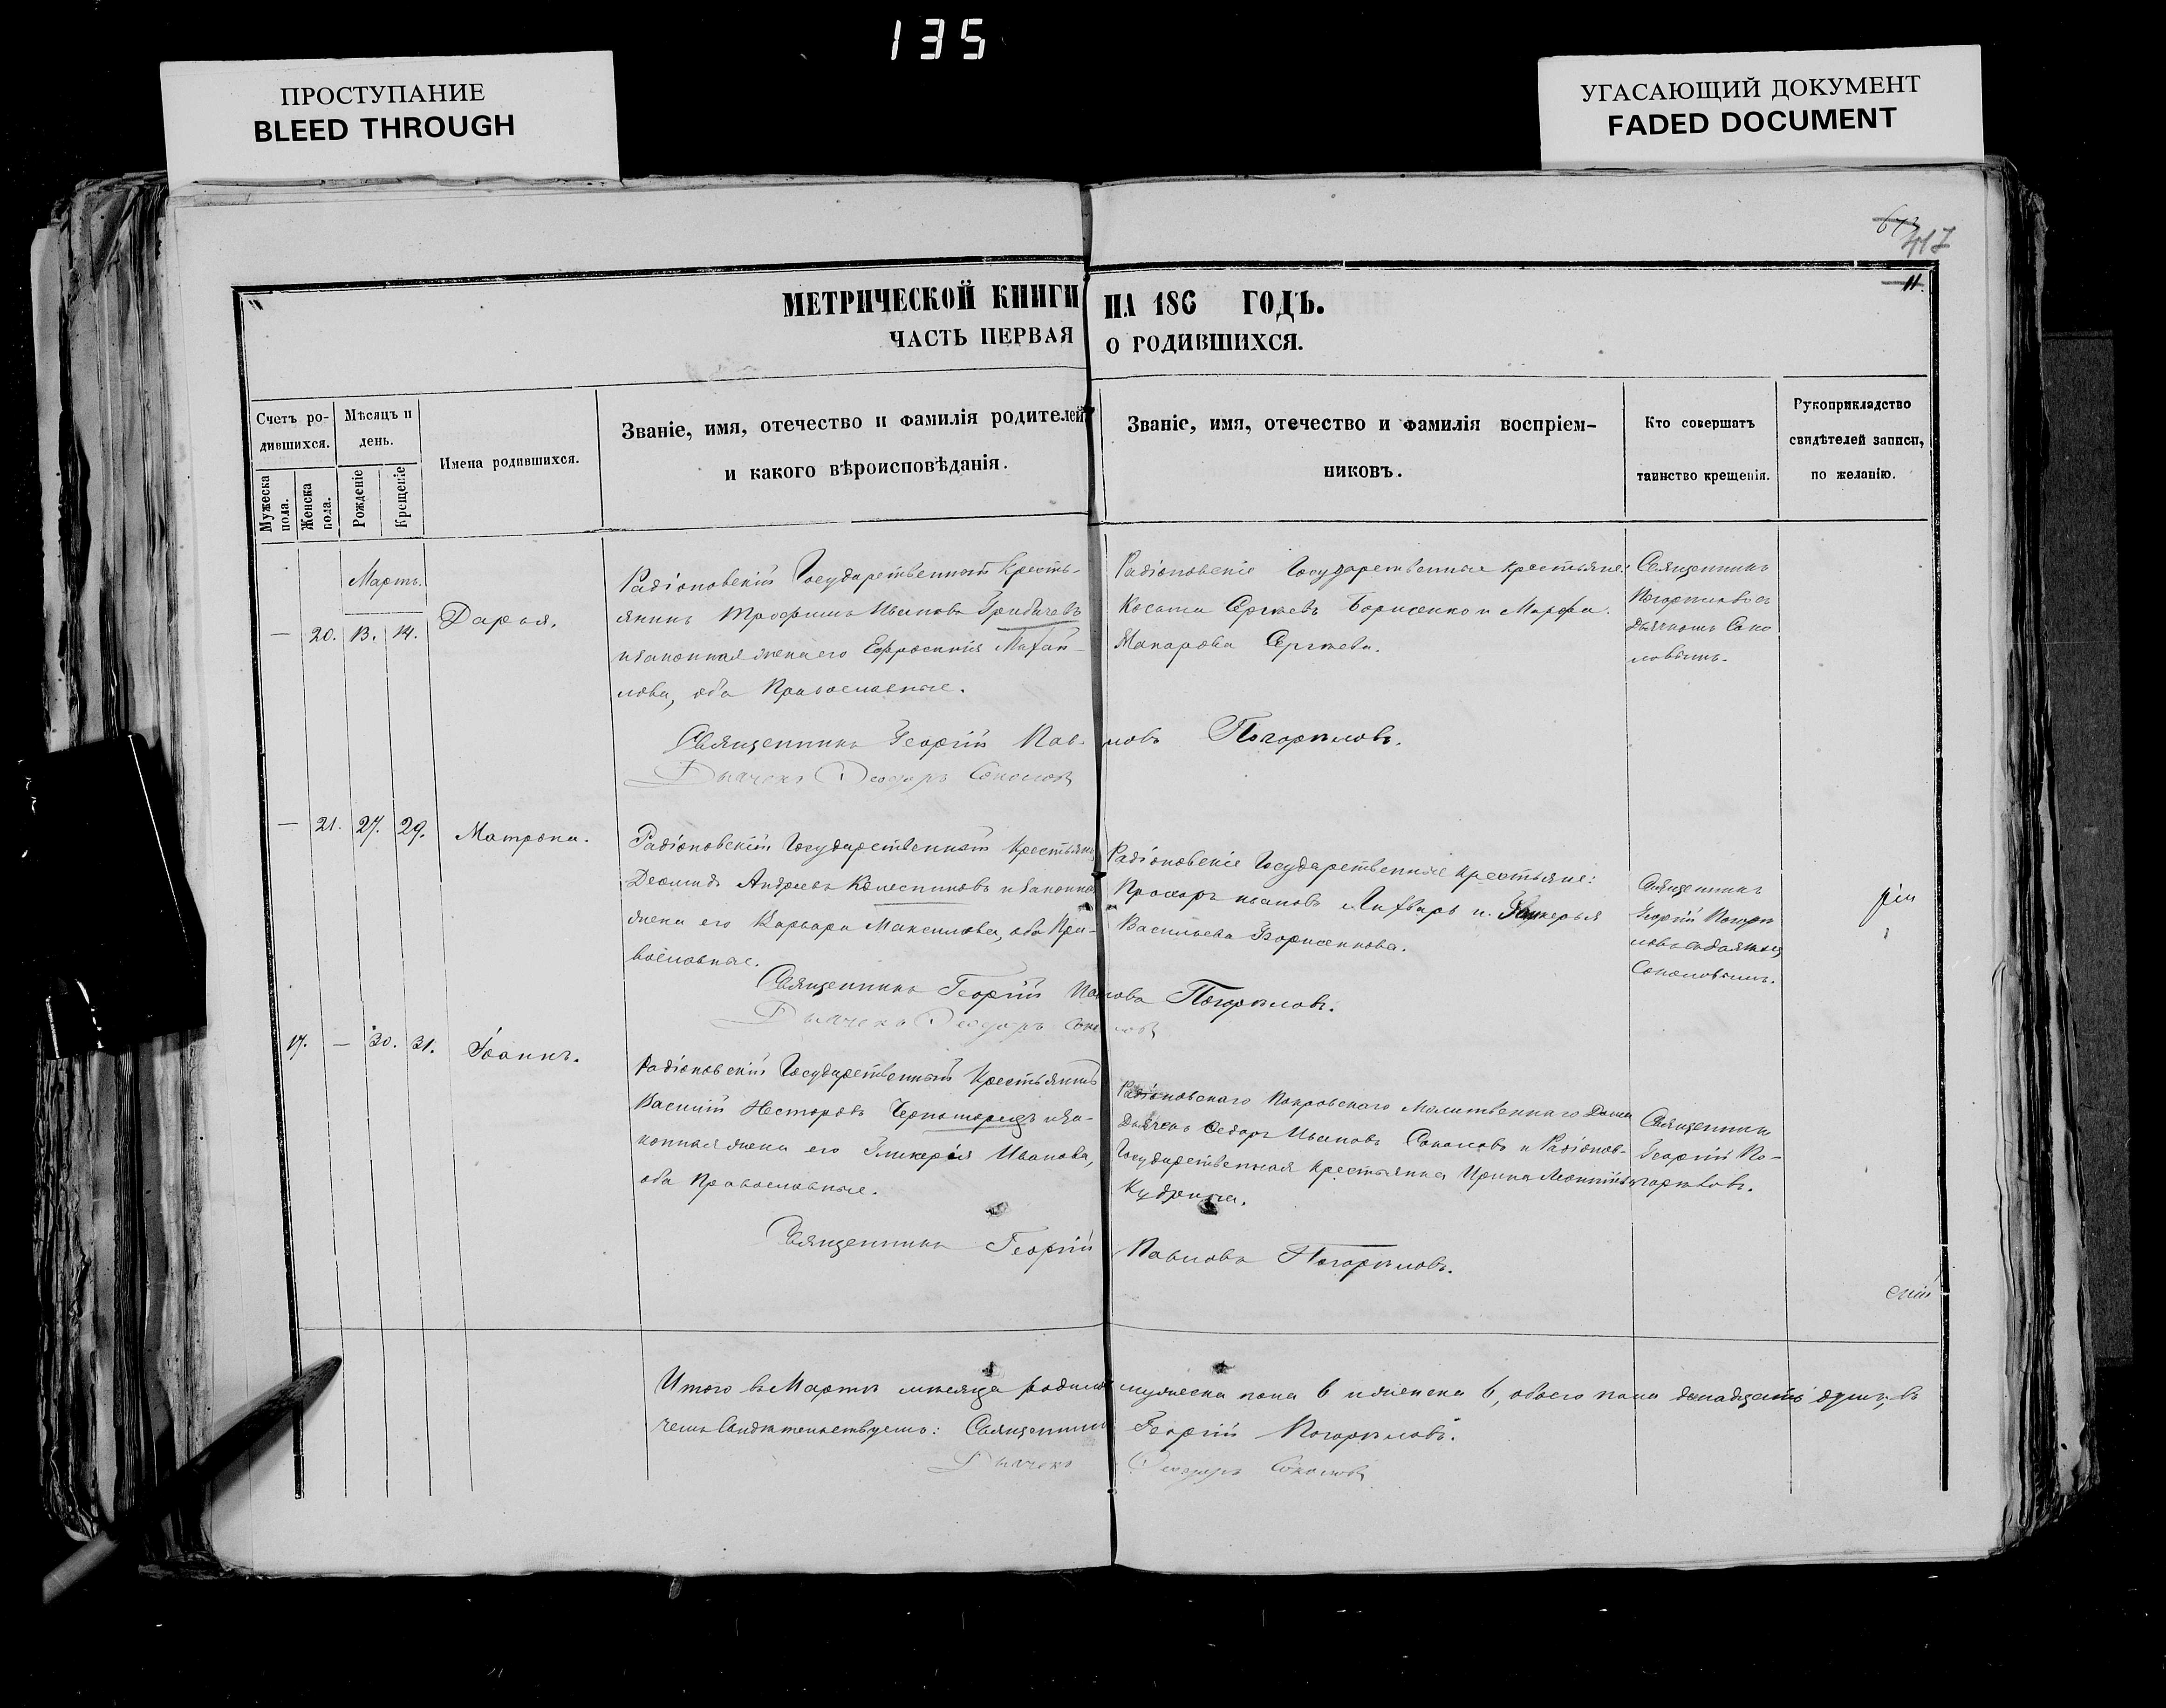 135
ПРОСТУПАНИЕ
BLEED THROUGH
УГАСАЮЩИЙ ДОКУМЕНТ
FADED DOCUMENT
673
417
11
11.
МЕТРИЧЕСКОЙ КНИГИ НА 186 ГОДЪ.
ЧАСТЬ ПЕРВАЯ О РОДИВШИХСЯ.
Счетъ ро-
дившихся.
Мужеска пола.
Женска пола.
Мѣсяцъ и
день.
Рожденіе
Крещеніе
Имена родившихся.
Званіе, имя, отечество и фамилія родителей
и какого вѣроисповѣданія.
Званіе, имя, отечество и фамилія воспріем-
никовъ.
Кто совершатъ
таинство крещенія.
Рукоприкладство
свидѣтелей записи,
по желанію.
Мартъ.
— 20. 13. 14. Дарья.
Радіоновскій Государственный Кресть-
янинъ Трофимъ Ивановъ Грибачевъ
и законная жена его Ефросинія Михай-
лова, оба Православные.
Радіоновскіе Государственные крестьяне:
Косьма Сергѣевъ Борисенко и Марфа
Макарова Сергѣева.
Священникъ
Погорѣловъ съ
Дьячкомъ Соко
ловымъ.
Священникъ Георгій Пав-ловъ Погорѣловъ.
Дьячекъ Ѳеодоръ Соколовъ
— 21. 27. 29. Матрона.
Радіоновскій Государственный Крестьянинъ
Андреевъ Колесниковъ и законная
жена его Варвара Максимова, оба Пра-
вославные.
Радіоновскіе Государственные крестьяне:
Прохоръ Ивановъ и Гликерья
Васильева Борисенкова.
Священникъ
Георгій Погорѣ
ловъ съ дьячкомъ
Соколовымъ.
Священникъ Георгій Павловъ Погорѣловъ.
Дьячекъ Ѳеодоръ Соколовъ
17. — 30. 31. Іоаннъ.
Радіоновскій Государственный Крестьянинъ
Василій Несторовъ Черноморецъ и за-
конная жена его Гликерія Иванова,
оба Православные.
Радіоновскаго Покровскаго Молитвеннаго Дома
Дьячекъ Ѳедоръ Ивановъ Соколовъ и Радіонов-
Государственная крестьянка Ирина Леонтіева
Кудрина.
Священникъ
Георгій По-
горѣловъ.
Священникъ Георгій Павловъ Погорѣловъ.
Итого въ Мартѣ мѣсяцѣ родилось мужеска пола 6 и женска 6, обоего пола двѣнадцать душъ; въ
чемъ свидѣтельствуемъ: Священникъ Георгій Погорѣловъ.
Дьячекъ Ѳеодоръ Соколовъ